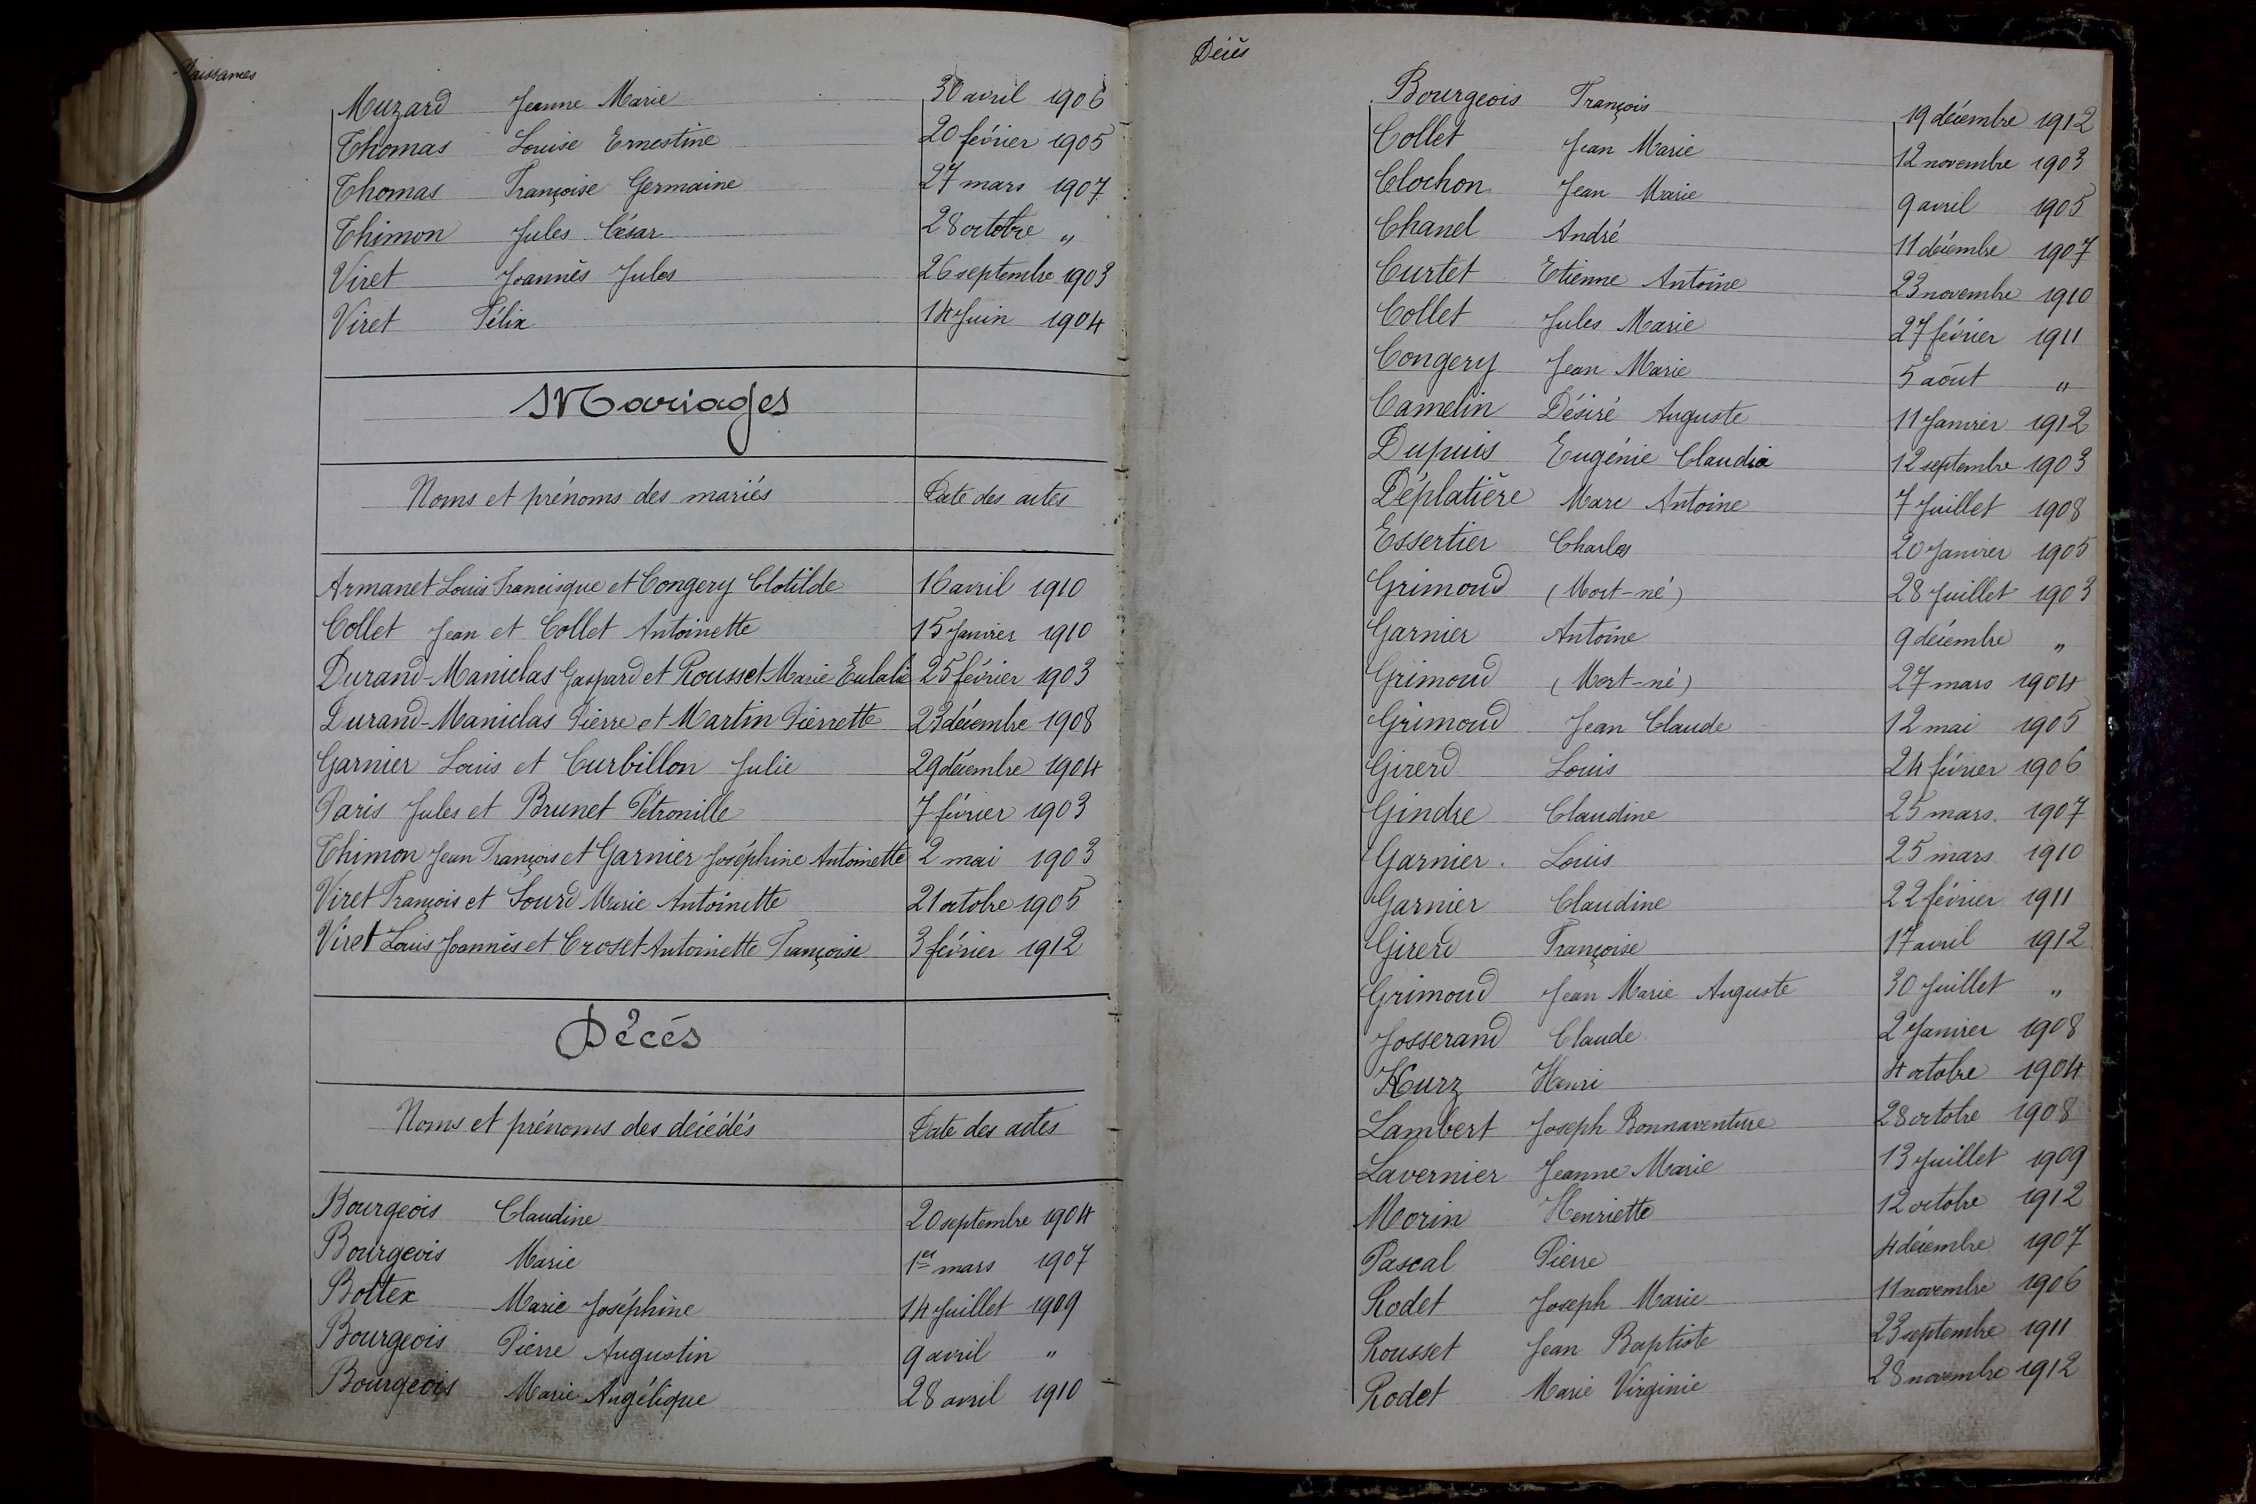 Naissances
Muzard Jeanne Marie 30 avril 1906
Thomas Louise Ernestine 20 février 1905
Thomas Françoise Germaine 27 mars 1907
Thimon Jules César 28 octobre "
Viret Joannès Jules 26 septembre 1903
Viret Félix 14 Juin 1904
Mariages
Noms et prénoms des mariés Date des actes
Armanet Louis Francisque et Congery Clotilde 16 avril 1910
Collet Jean et Collet Antoinette 15 Janvier 1910
Durand-Maniclas Gaspard et Rousset Marie Eulalie 25 février 1903
Durand-Maniclas Pierre et Martin Pierrette 23 décembre 1908
Garnier Louis et Curbillon Julie 29 décembre 1904
Paris Jules et Brunet Pétronille 7 février 1903
Thimon Jean François et Garnier Joséphine Antoinette 2 mai 1903
Viret François et Sourd Marie Antoinette 21 octobre 1905
Viret Louis Joannès et Croset Antoinette Françoise 3 février 1912
Décés
Noms et prénoms des décédés Date des actes
Bourgeois Claudine 20 septembre 1904
Bourgeois Marie 1er mars 1907
Bottex Marie Joséphine 14 Juillet 1909
Bourgeois Pierre Augustin 9 avril "
Bourgeois Marie Angélique 28 avril 1910
Décès
Bourgeois François 19 décembre 1912
Collet Jean Marie 12 novembre 1903
Clochon Jean Marie 9 avril 1905
Chanel André 11 décembre 1907
Curtet Etienne Antoine 23 novembre 1910
Collet Jules Marie 27 février 1911
Congery Jean Marie 5 août "
Camelin Désiré Auguste 11 Janvier 1912
Dupuis Eugénie Claudia 12 septembre 1903
Déplatière Marc Antoine 7 Juillet 1908
Essertier Charles 20 Janvier 1905
Grimoud (Mort-né) 28 Juillet 1903
Garnier Antoine 9 décembre "
Grimoud (Mort-né) 27 mars 1904
Grimoud Jean Claude 12 mai 1905
Girerd Louis 24 février 1906
Gindre Claudine 25 mars 1907
Garnier Louis 25 mars 1910
Garnier Claudine 22 février 1911
Girerd Françoise 17 avril 1912
Grimoud Jean Marie Auguste 30 Juillet "
Josserand Claude 2 Janvier 1908
Kurz Henri 4 octobre 1904
Lambert Joseph Bonnaventure 28 octobre 1908
Lavernier Jeanne Marie 13 Juillet 1909
Morin Henriette 12 octobre 1912
Pascal Pierre 4 décembre 1907
Rodet Joseph Marie 11 novembre 1906
Rousset Jean Baptiste 23 septembre 1911
Rodet Marie Virginie 28 novembre 1912